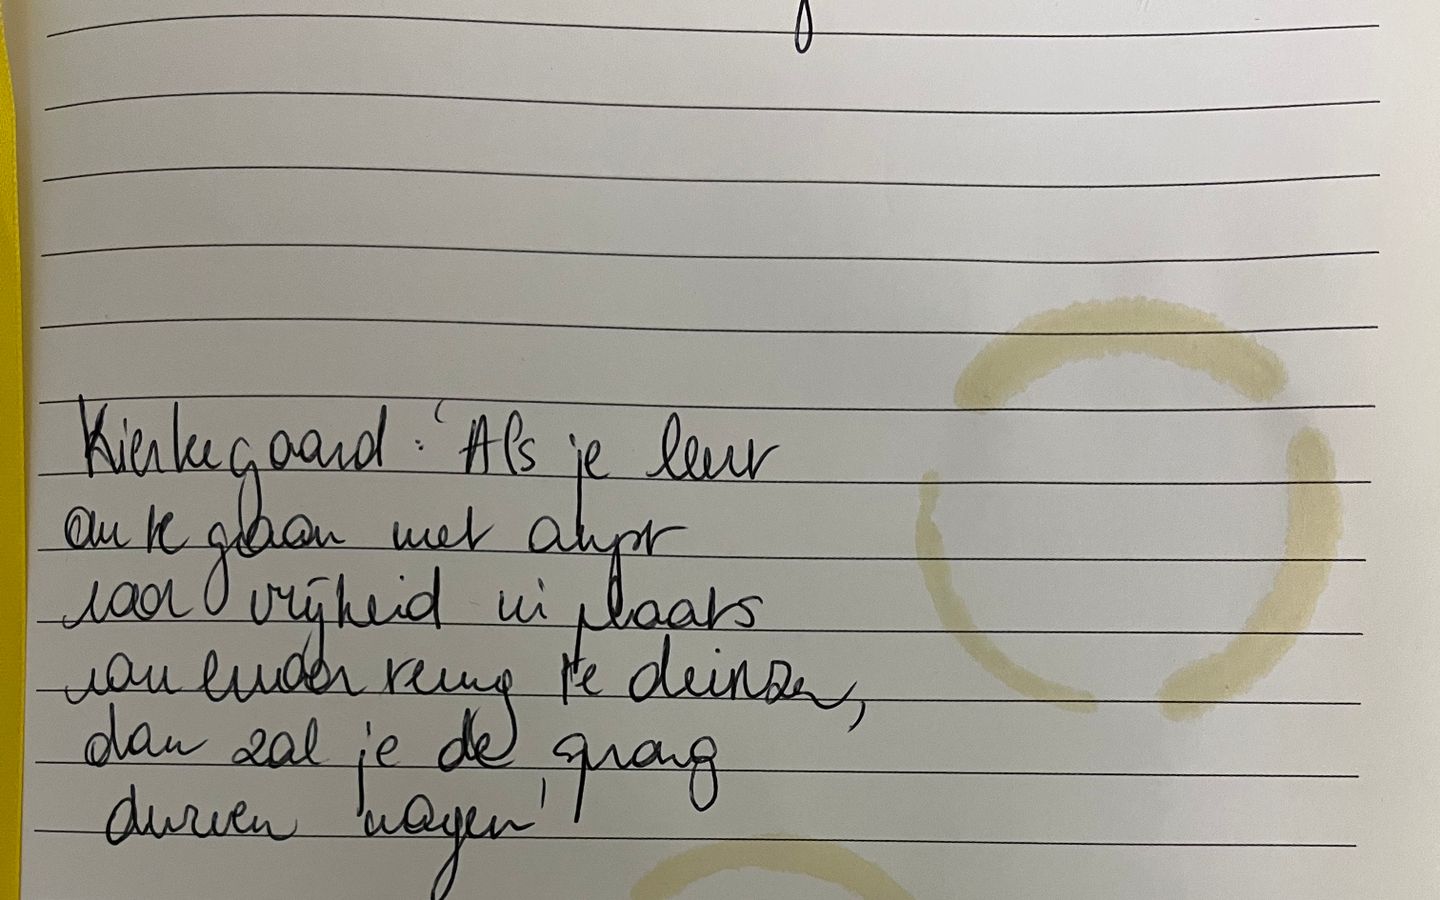 Kierkegaard: 'Als je leert
om te gaan met angst
voor vrijheid in plaats
van ervoor terug te deinzen,
dan zal je de sprong
durven wagen'